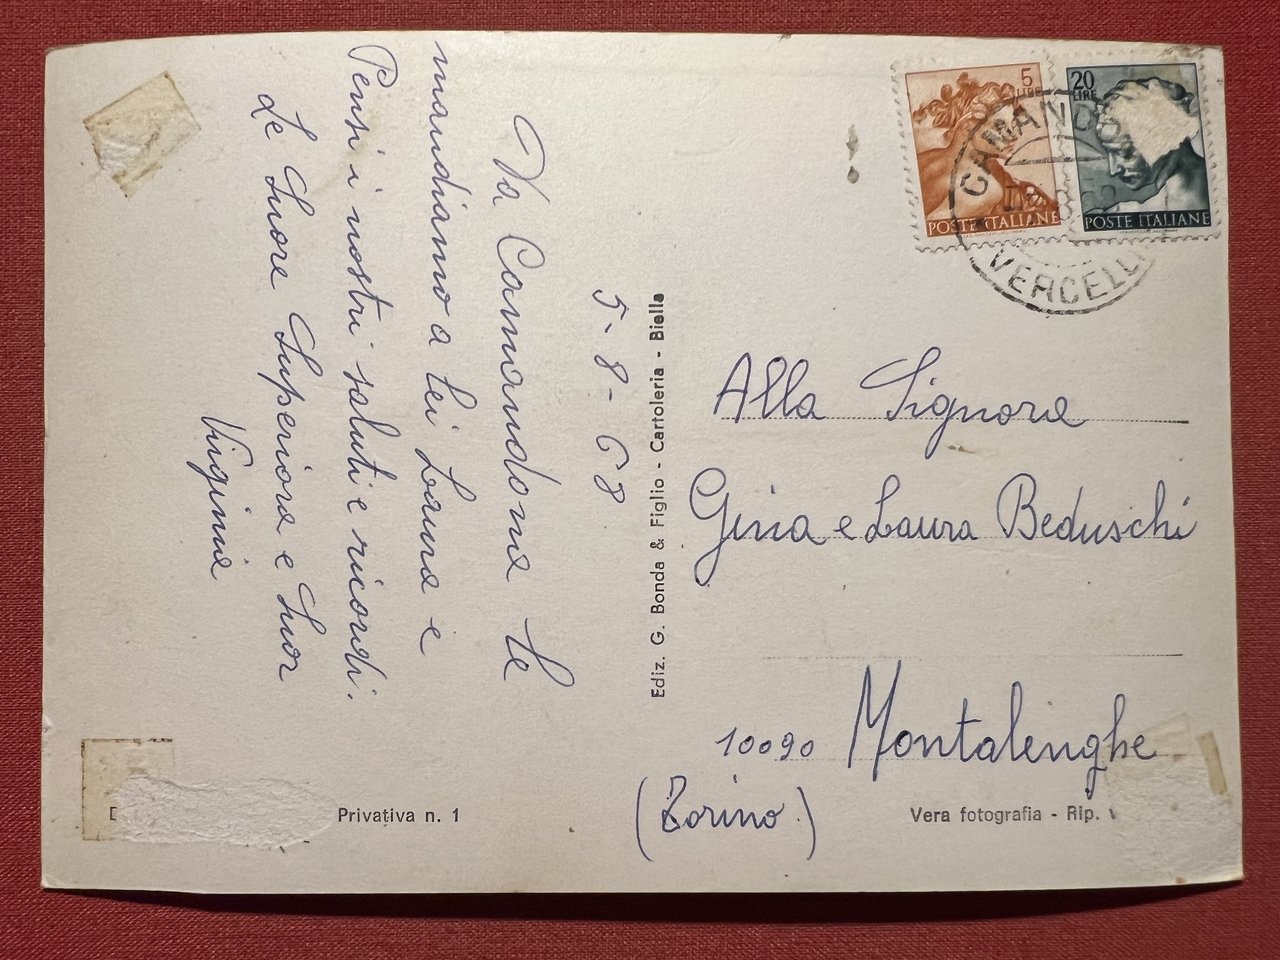 5-8-68
Da Camandona le
mandiamo a lei Laura e
Pensi i nostri saluti e ricordi.
Le Suore Superiora e Suor
Virginia
Ediz. G. Bonda & Figlio - Cartoleria - Biella
5
LIRE
POSTE ITALIANE
20
LIRE
POSTE ITALIANE
CAMANDO
VERCELLI
Alla Signora
Gina e Laura Beduschi
10090 Montalenghe
(Torino)
Privativa n. 1
Vera fotografia - Rip.